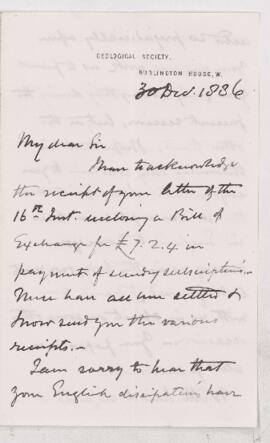 GEOLOGICAL SOCIETY,
BURLINGTON HOUSE, W.
30 Dec. 1886
My dear Sir
I have to acknowledge
the receipt of your letter of the
16th Inst. inclosing a Bill of
Exchange for £7.2.4 in
payment of sundry subscriptions.
These have all been settled &
I now send you the various
receipts. —
I am sorry to hear that
your English dissipations have